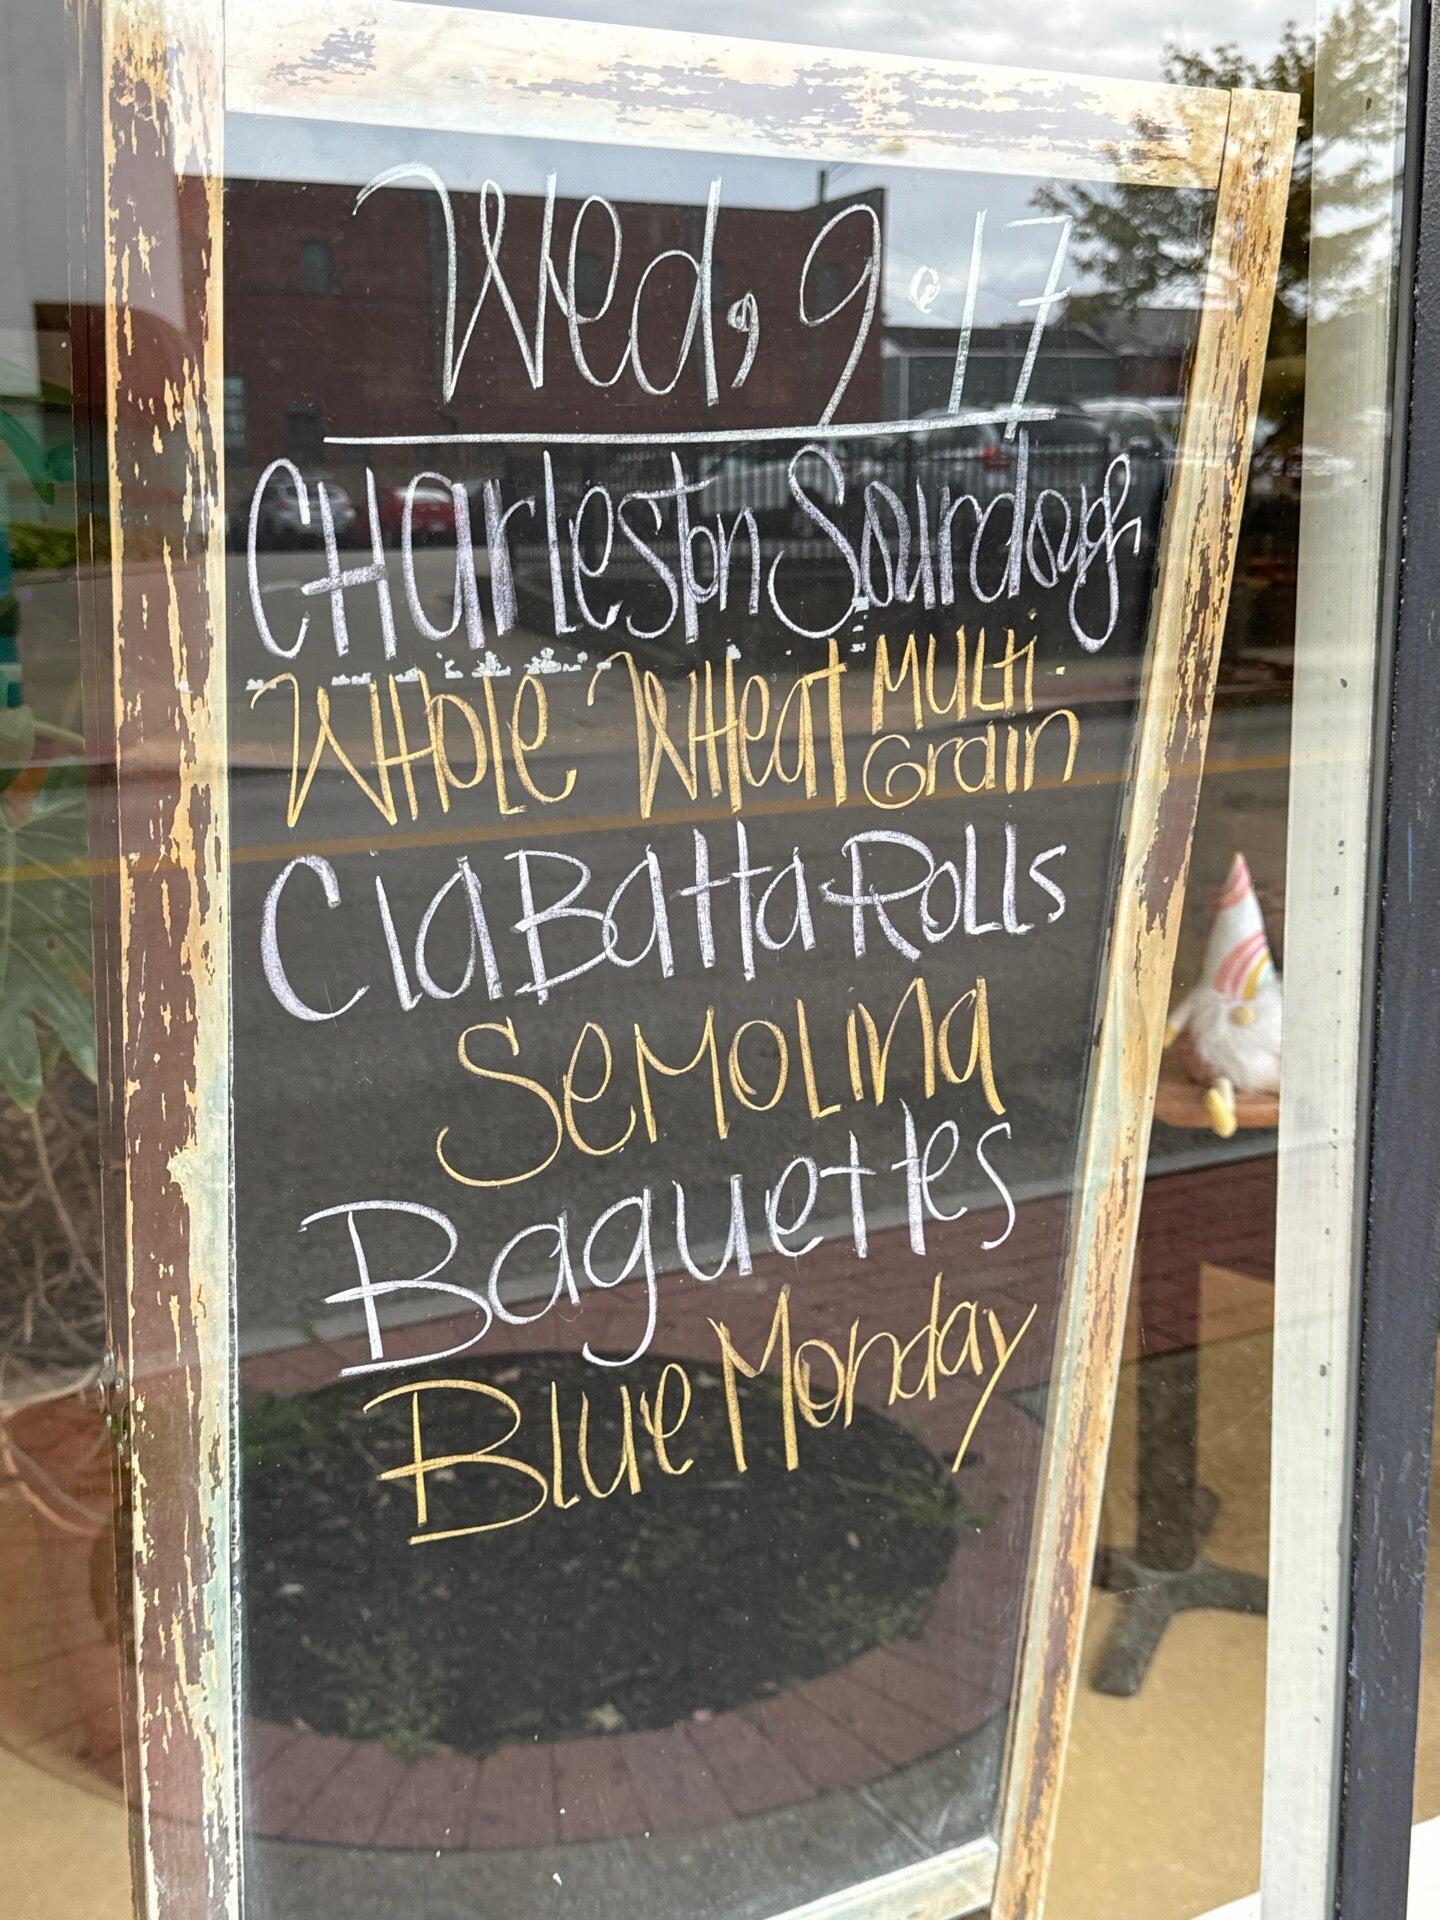 Wed, 9.17
CHarleston Sourdough
WHole WHeat Multi-
Grain
CiaBatta Rolls
Semolina
Baguettes
Blue Monday